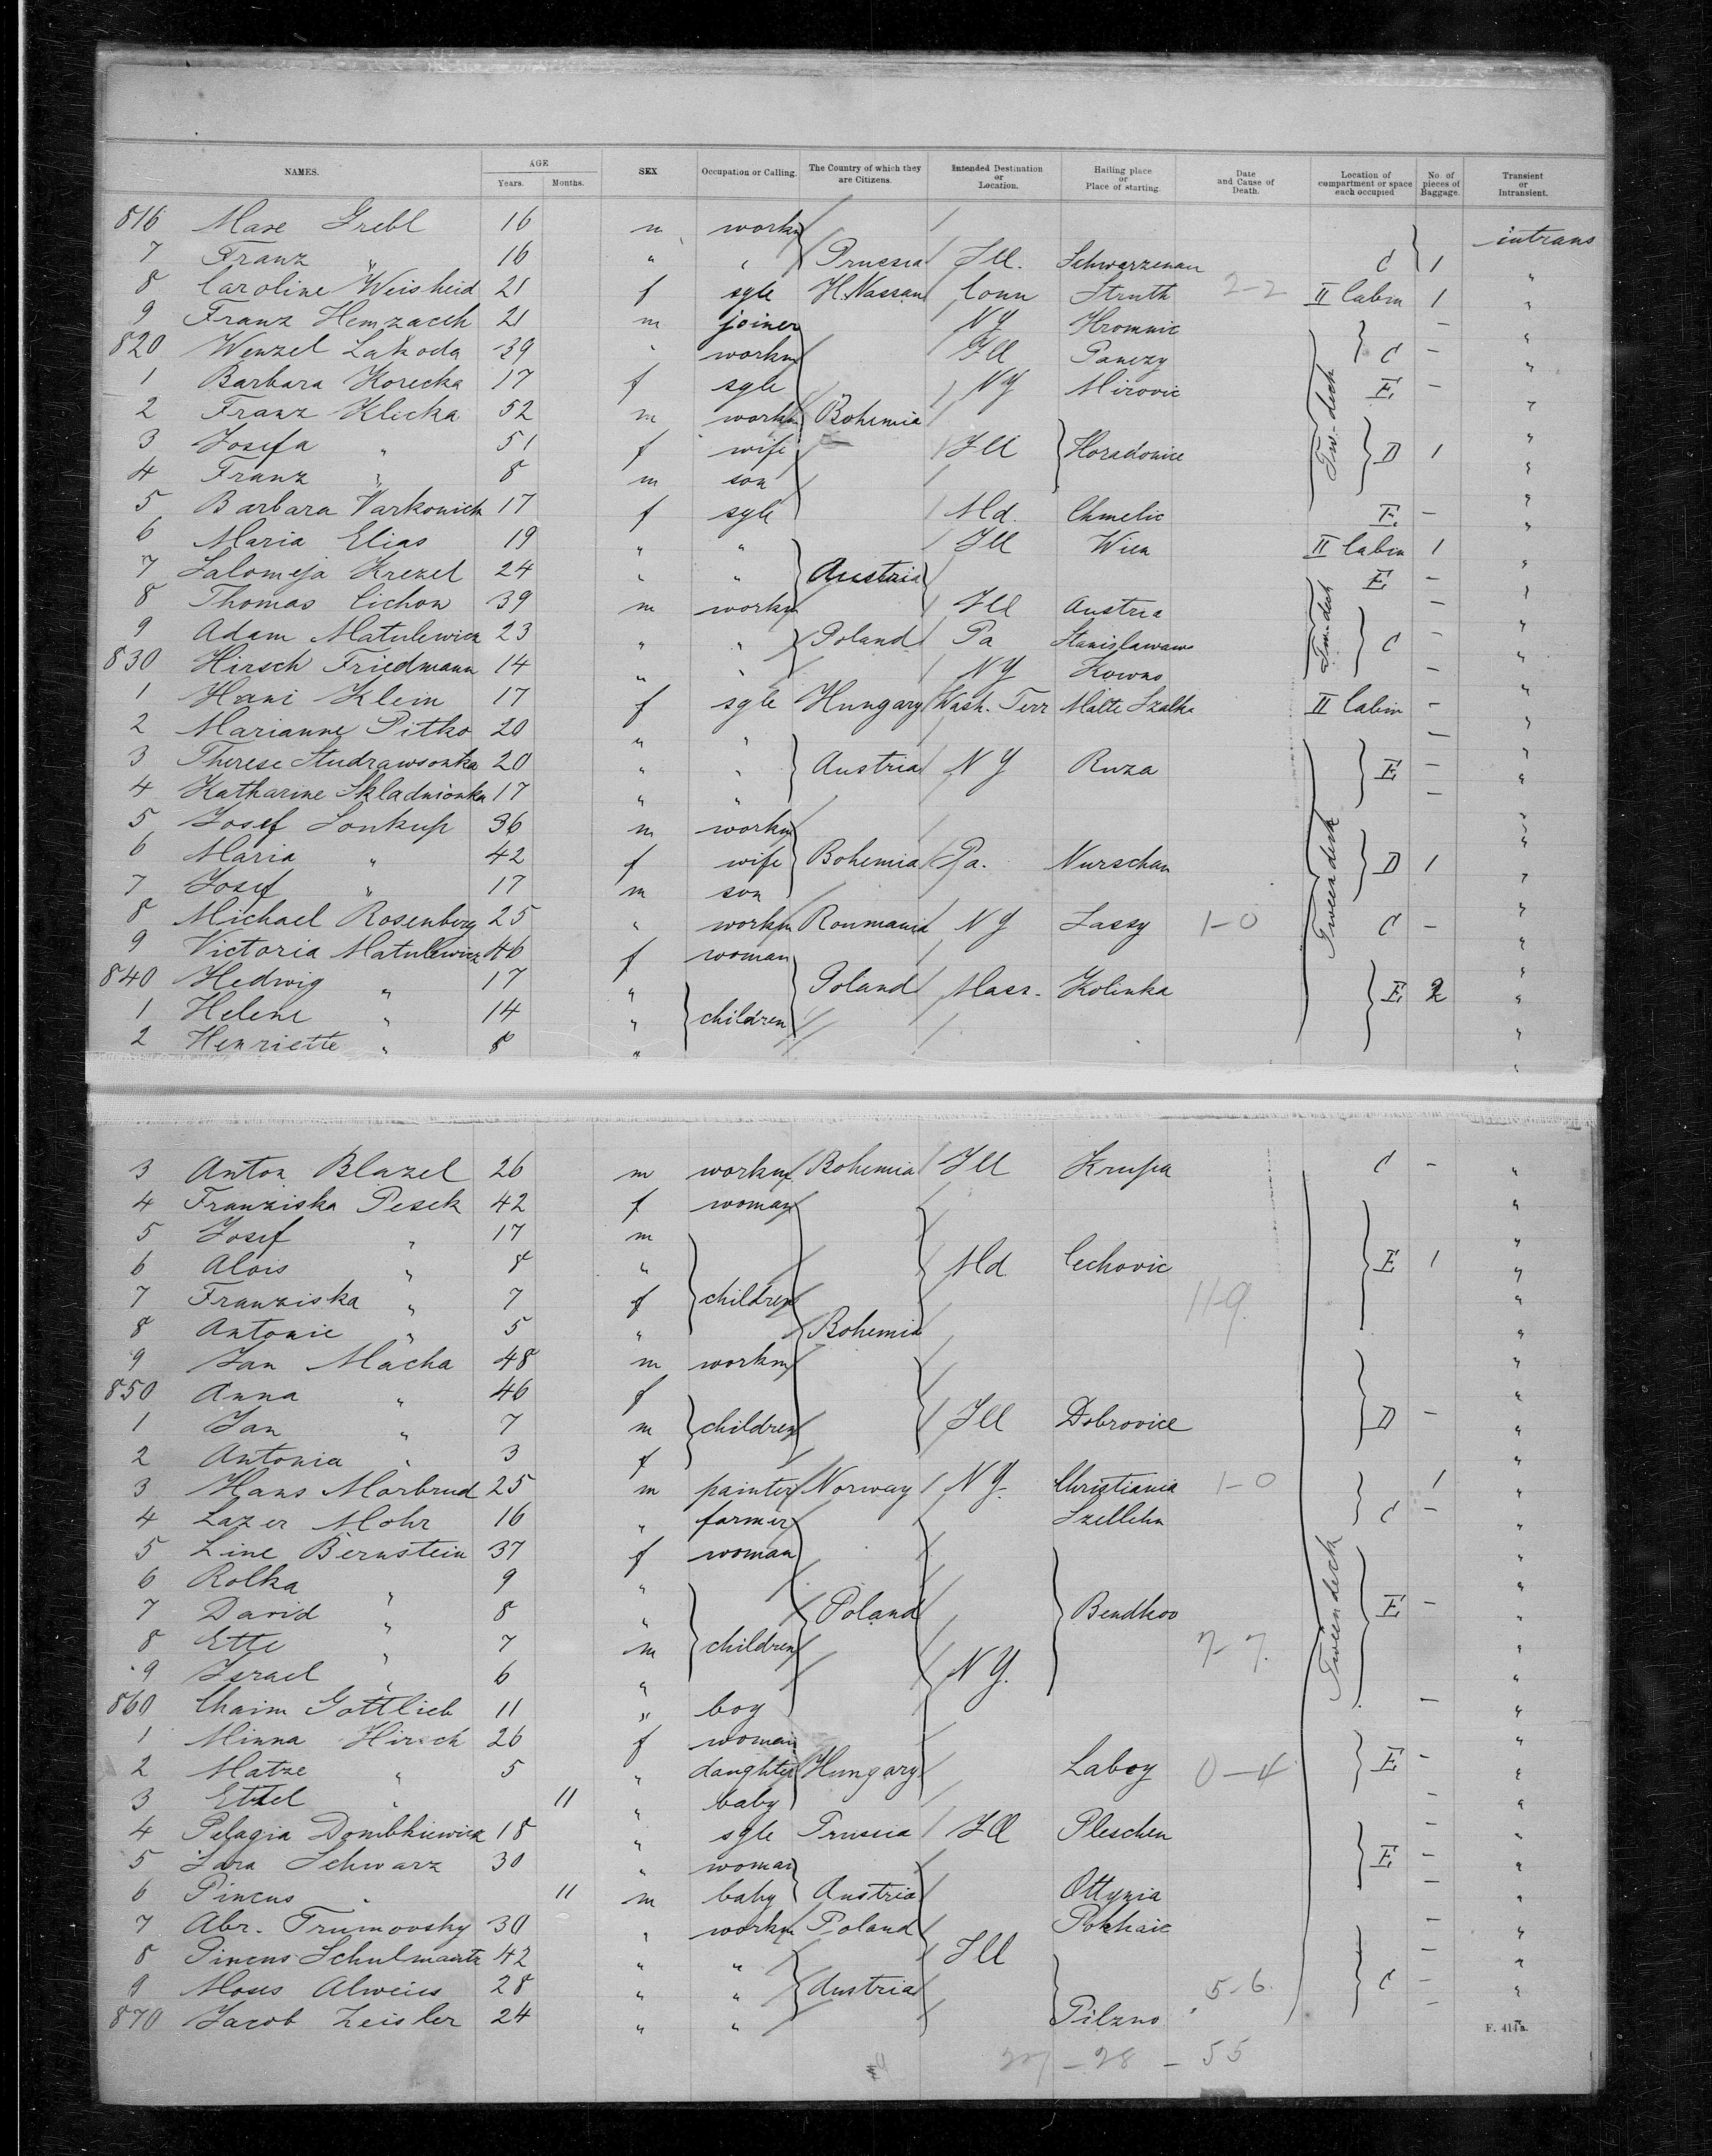 NAMES. AGE Years. Months. SEX Occupation or Calling. The Country of which they are Citizens. Intended Destination or Location. Hailing place or Place of starting. Date and Cause of Death. Location of compartment or space each occupied No. of pieces of Baggage. Transient or Intransient.
816 Maxe Grebl 16 m workm intrans
7 Franz " 16 " " Prussia Ill. Schwarzenau C 1 "
8 Caroline Weisheid 21 f sgle H. Nassau Conn Struth 2-2 II Cabin 1 "
9 Franz Hemzacek 21 m joiner NY Hromnic - "
820 Wenzel Lakoda 39 " workm Ill Panczy C - "
1 Barbara Korecka 17 f sgle NY Mirovic E - "
2 Franz Klicka 52 m workm Bohemia Tw.-deck "
3 Josefa " 51 f wife Ill Horadovice D 1 "
4 Franz " 8 m son "
5 Barbara Varkonicka 17 f sgle Md. Chmelic E. - "
6 Maria Elias 19 " " Ill Wien II Cabin 1 "
7 Salomeja Krezel 24 " " Austria E - "
8 Thomas Cichon 39 m workm Ill Austria Tw.-deck - "
9 Adam Matulewicz 23 " " Poland Pa Stanislawawo C - "
830 Hirsch Friedmann 14 " " NY Kowno - "
1 Hani Klein 17 f sgle Hungary Wash. Terr Mátte Szalka II Cabin - "
2 Marianne Pitko 20 " " - "
3 Therese Studrawsonka 20 " " Austria NY Ruza E - "
4 Katharine Skladnionka 17 " " - "
5 Josef Soukup 36 m workm "
6 Maria " 42 f wife Bohemia Pa. Nurschan Tweendeck D 1 "
7 Josef " 17 m son "
8 Michael Rosenberg 25 " workm Roumania NY Jassy 1-0 C - "
9 Victoria Matulewicz 46 f woman "
840 Hedwig " 17 " Poland Mass. Kolinka E 2 "
1 Helene " 14 " children "
2 Henriette " 8 " "
3 Anton Blazel 26 m workm Bohemia Ill Krupa C - "
4 Franziska Pesek 42 f woman "
5 Josef " 17 m "
6 Alois " 8 " Md Cechovic E 1 "
7 Franziska " 7 f children 11-9 "
8 Antonie " 5 " Bohemia "
9 Jan Macha 48 m workm "
850 Anna " 46 f "
1 Jan " 7 m children Ill Dobrovice D - "
2 Antonia " 3 f "
3 Hans Morbrud 25 m painter Norway NY. Christiania 1-0 1 "
4 Lazer Mohr 16 " farmer Szellehn C - "
5 Line Bernstein 37 f woman "
6 Rolka " 9 " "
7 David " 8 " Poland Bendkoo Tweendeck E - "
8 Ette " 7 m children 7-7. "
9 Israel " 6 " NY. "
860 Chaim Gottlieb 11 " boy - "
1 Minna Hirsch 26 f woman "
2 Matze " 5 " daughter Hungary Laboy 0-4 E - "
3 Ettel " 11 " baby "
4 Pelagia Dombkiewicz 18 " sgle Prussia Ill Pleschen - "
5 Sara Schwarz 30 " woman E - "
6 Pincus " 11 m baby Austria Ottynia - "
7 Abr. Trumovsky 30 " workm Poland Pokhaic - "
8 Pincus Schulmantz 42 " " Ill - "
9 Moses Alweiss 28 " " Austria 5-6. C - "
870 Jacob Zeisler 24 " " Pilzno -
F. 414a.
27 - 28 - 55